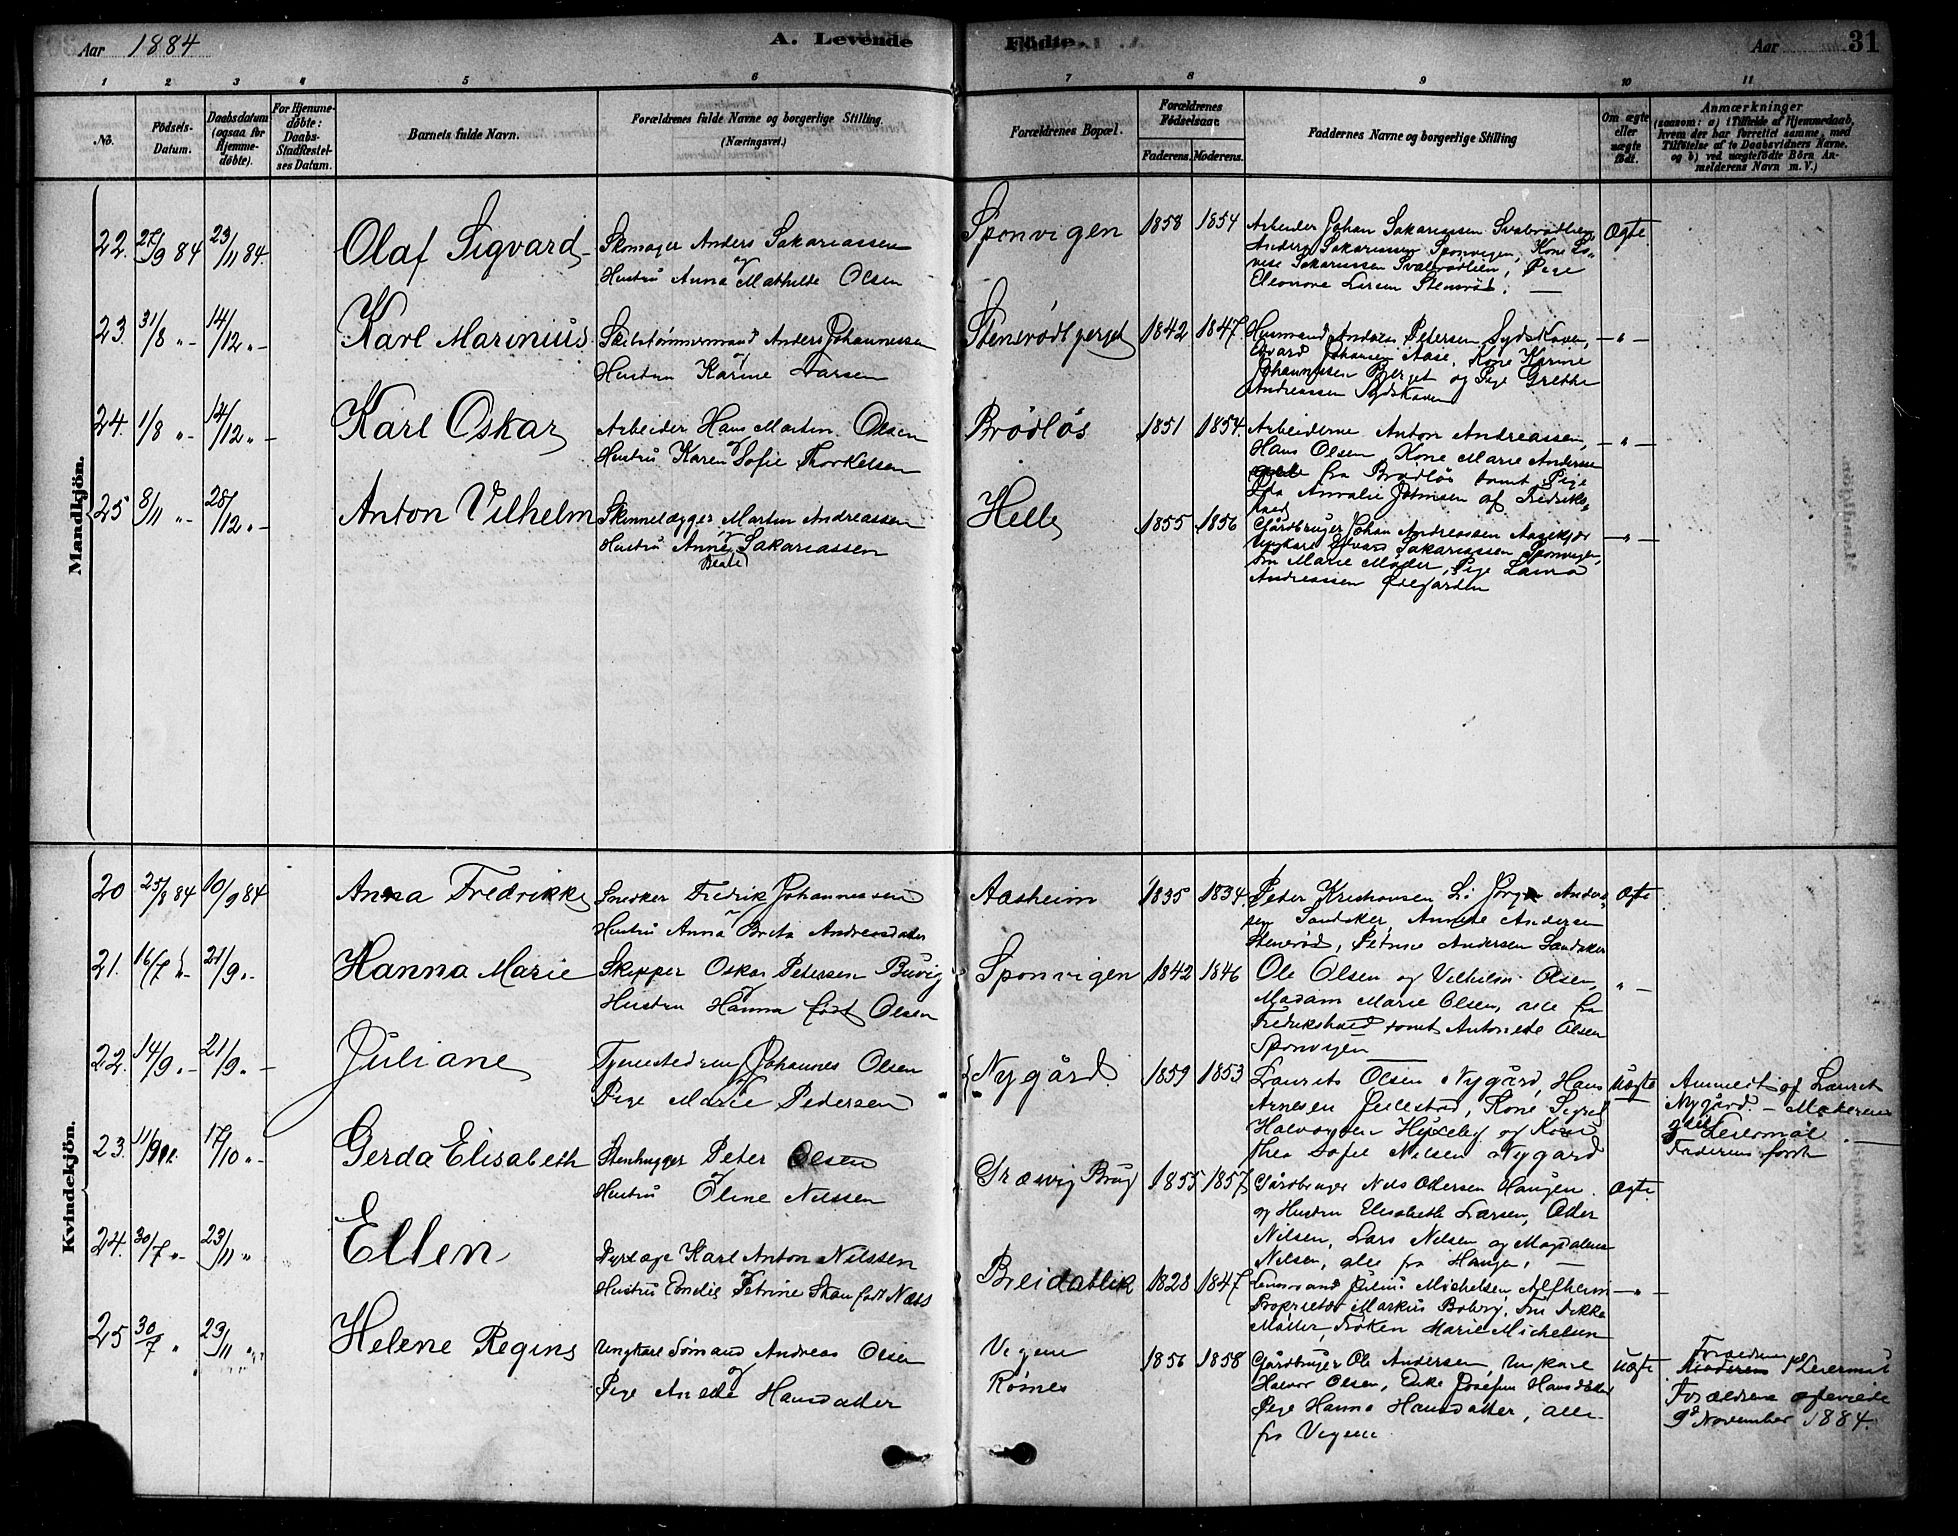 Aar 1884
A. Levende Födte.
Aar
31
1 2 3 4 5 6 7 8 9 10 11
No.
Födsels-Datum.
Daabsdatum (ogsaa for Hjemme-döbte).
For Hjemme-döbte: Daabs-Stadfæstel-ses Datum.
Barnets fulde Navn.
Forældrenes fulde Navne og borgerlige Stilling. (Næringsvei.)
Forældrenes Bopæl.
Forældrenes Födselsaar.
Faderens. Moderens.
Faddernes Navne og borgerlige Stilling
Om ægte eller uægte födt.
Anmærkninger
(saasom: a) i Tilfælde af Hjemmedaab,
hvem der har forrettet samme, med
Tilföielse af to Daabsvidners Navne,
og b) ved uægtefödte Börn An-
melderens Navn m. V.)
Mandkjön.
22. 27/9 84 23/11 84. Olaf Sigvard
Skomager Anders Sakariassen
og
Hustru Anna Mathilde Olsen
Sponvigen 1858 1854
Arbeider Johan Sakariassen Svalerødlien
Anders Sakariassen Sponvigen, Kone Lo-
vise Sakariassen Svalerødlien, Pige
Eleonore Larsen Stenrød.
Ægte
23. 31/8 „- 14/12 „- Karl Marinius
Skibstømmermand Anders Johannessen
og
Hustru Karine Larsen
Stenrødbjerget 1842 1847.
Husmand Andreas Petersen Sydskoven,
Edvard Johansen Aase, Kone Karine
Johannessen Berget og Pige Grethe
Andreassen Sydskoven
-„-
24. 1/8 „- 14/12 „- Karl Oskar
Arbeider Hans Martin Olsen
og
Hustru Karen Sofie Thorkelsen
Brødløs 1851 1854.
Arbeiderne Anton Andreassen,
Hans Olsen, Kone Marie Andersen
fra Brødløs samt Pige
Amalie Johnsen af Fredriks-
stad
-„-
25 8/11 „- 28/12 „- Anton Vilhelm
Skindelægger Martin Andreassen
og
Hustru Anne Sakariassen
Beate
Helle 1855 1856
Gårdbruger Johan Andreassen
Ungkarl Edvard Sakariassen Sponvigen,
Marie Møller, Pige Laura
Andreassen Øiegården
-„-
Kvindekjön.
20 25/8 84 10/9 84 Anna Fredrikke
Snedker Fredrik Johannessen
og
Hustru Anna Brita Andreasdatter
Aasheim 1835 1834.
Peder Kristiansen Li, Jørgen Ander-
sen Sandaker, Annette Andersen
Stenrød, Petrine Andersen Sandaker
Ægte
21. 16/7 „- 21/9 „- Hanna Marie
Skipper Oskar Petersen Buvig
og
Hustru Hanna født Olsen
Sponvigen 1842 1846
Ole Olsen og Vilhelm Olsen,
Madam Marie Olsen, alle fra
Fredrikshald samt Antonette Olsen
Sponvigen
„-
22. 14/9 „- 21/9 „- Juliane
Tjenestedreng Johannes Olsen
og
Pige Marie Pedersen
Nygård. 1859 1853
Laurits Olsen Nygård, Hans
Arnesen Jellestad, Kone Sigrid
Halvorsen Huseby og
thea Sofie Nilsen Nygård
Uægte
Anmeldt af Laurits
Nygård. - Moderens
2det Leiermål
Faderens første
23. 11/9 „. 17/10 „- Gerda Elisabeth
Stenhugger Peter Olsen
og
Hustru Oline Nilssen
Græsvig Brug 1855 1857
Gårdbruger Nils Ottersen Haugen
og Hustru Elisabeth Larsen, Otter
Nilsen, Lars Nilsen og Magdalene
Nilsen, alle fra Haugen.
Ægte
24. 30/7 „- 23/11 „ Ellen
Dyrlæge Karl Anton Nilssen
og
Hustru Emilie Petrine Skau født Næss
Breidablik 1828 1847
Julius Michelsen Alfheim
Proprietær Markus Boberg, Fru Fikka
Møller, Frøken Marie Michelsen
-„-
25 30/7 „ 23/11 „ Helene Regine
Ungkarl Sømand Andreas Olsen
og
Pige Anette Hansdatter
Vigene
Rømes
1856 1858
Gårdbruger Ole Andersen, Ungkarl
Halvor Olsen, Enke Josefine Hansdatter
Pige Hanna Hansdatter, alle
fra Vigene
Uægte
Forældrenes
Moderens 1ste Leiermål
Forældrene ægteviede
9de November 1884.